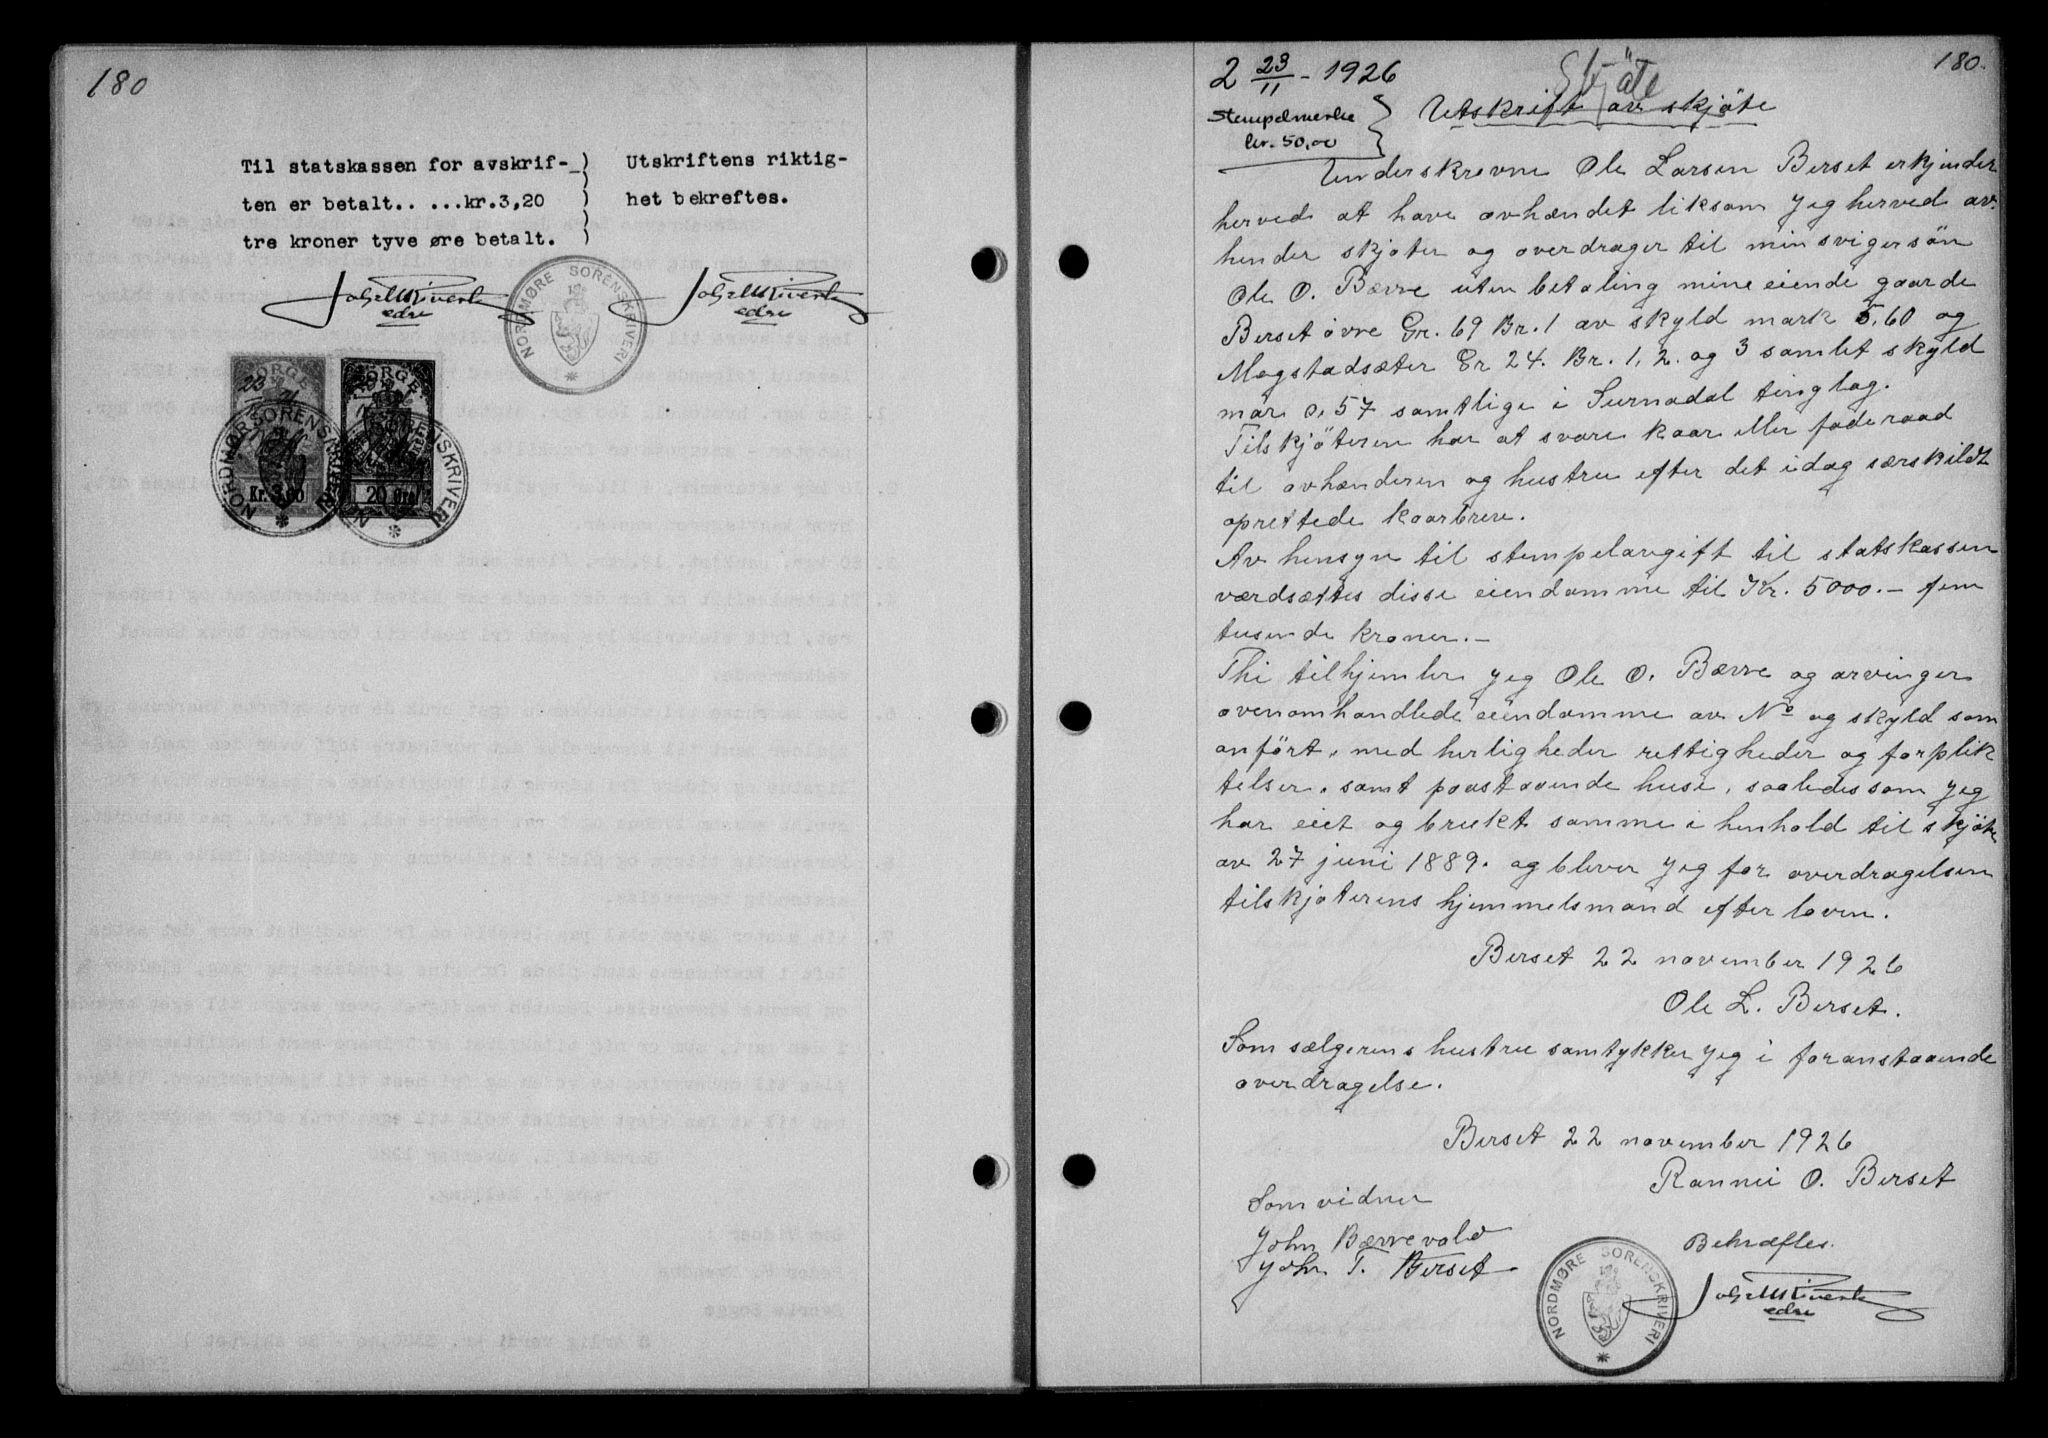 180
Til statskassen for avskrif-
ten er betalt.. ...kr.3,20
tre kroner tyve øre betalt.
Utskriftens riktig-
het bekreftes.
edsr
edsr
NORDMØRE SORENSKRIVERI
NORGE
NORGE
Kr. 3,00
20 Øre
NORDMØRE SORENSKRIVERI
NORDMØRE SORENSKRIVERI
180.
2 23/11 - 1926
Skjäte
Stempelmerke
kr. 50,00
Utskrift av skjöte
Underskrevne Ole Larsen Berset erkjender
herved at have avhændet liksom jeg herved av-
hender skjøter og overdrager til min svigersön
Ole O. Bævre uten betaling mine eiende gaarde
Berset övre Gr. 69 Br. 1 av skyld mark 5,60 og
Mogstadsæter Gr 24. Br. 1, 2. og 3 samlet skyld
mar 0,57 samtlige i Surnadal tinglag.
Tilskjöteren har at svare kaar eller föderaad
til avhænderen og hustru efter det idag særskildt
oprettede kaarbrev.
Av hensyn til stempelavgift til statskassen
værdsættes disse eiendomme til Kr. 5000.- fem
tusinde kroner.-
Thi tilhjemler jeg Ole O. Bævre og arvinger
ovenomhandlede eiendomme av No og skyld som
anfört, med herligheder rettigheder og forplik
telser, samt paastaaende huse, saaledes som jeg
har eiet og brukt samme i henhold til skjöte
av 27 juni 1889. og bliver jeg for overdragelsen
tilskjøterens hjemmelsmand efter loven.
Berset 22 november 1926
Ole L. Berset.
Som sælgerens hustru samtykker jeg i foranstaaende
overdragelse.
Berset 22 november 1926
Rannei O. Berset
Som vidner
John Bævrevold
John T. Berset
Bekræftes.
edsr
NORDMØRE SORENSKRIVERI